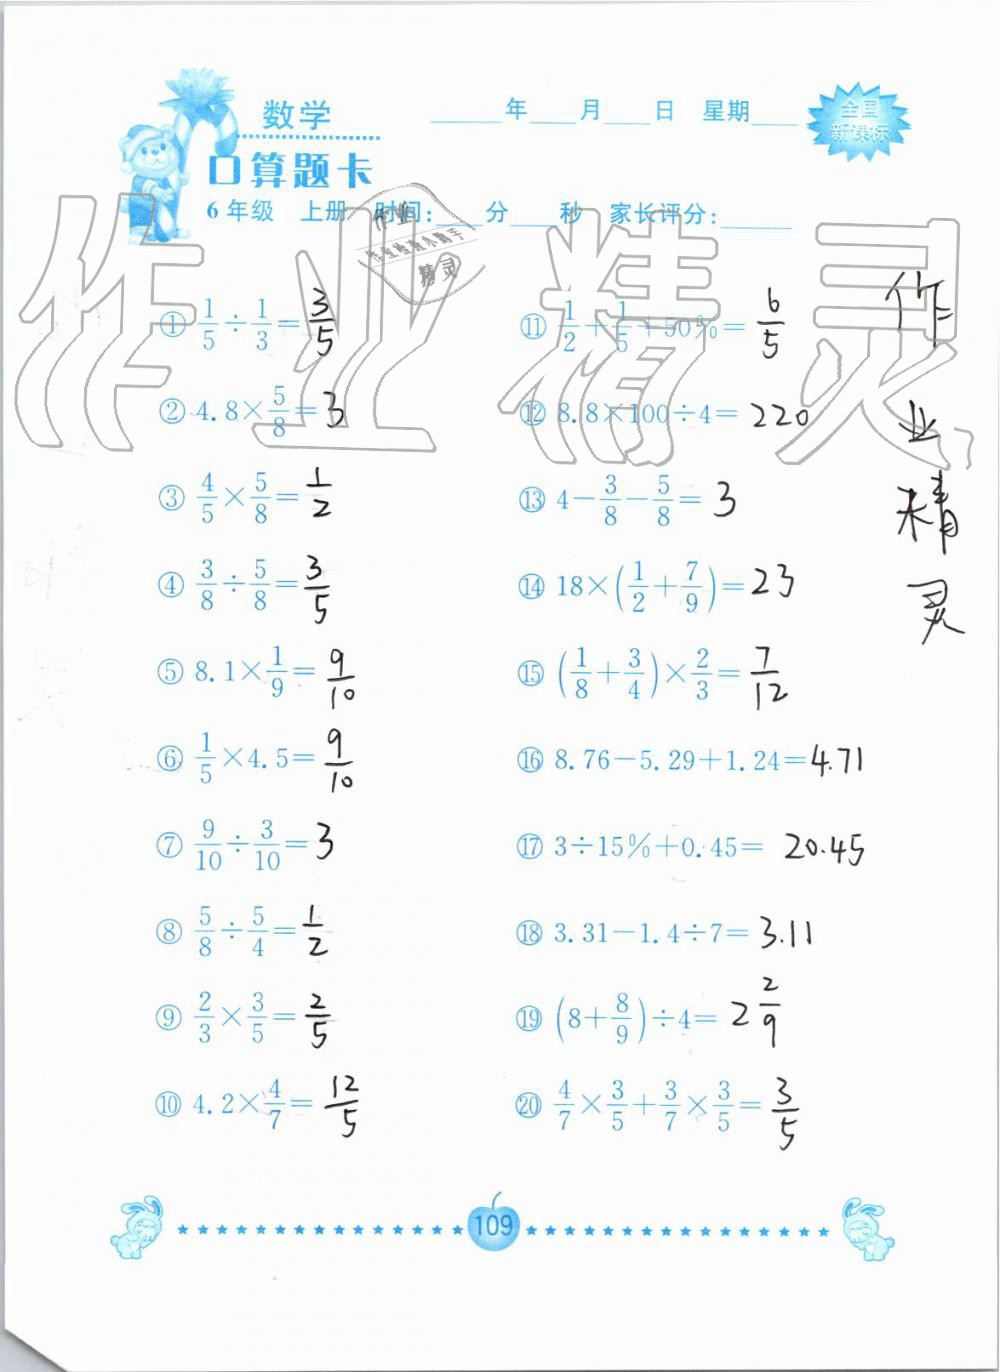 数学
____年____月____日 星期____
全国
新课标
口算题卡
6年级 上册 时间:____分____秒 家长评分:____
作业
作业检查小助手
精灵
作业精灵
① 1/5÷1/3=3/5
② 4.8×5/8=3
③ 4/5×5/8=1/2
④ 3/8÷5/8=3/5
⑤ 8.1×1/9=9/10
⑥ 1/5×4.5=9/10
⑦ 9/10÷3/10=3
⑧ 5/8÷5/4=1/2
⑨ 2/3×3/5=2/5
⑩ 4.2×4/7=12/5
⑪ 1/2+1/5+50%=6/5
⑫ 8.8×100÷4=220
⑬ 4-3/8-5/8=3
⑭ 18×(1/2+7/9)=23
⑮ (1/8+3/4)×2/3=7/12
⑯ 8.76-5.29+1.24=4.71
⑰ 3÷15%+0.45=20.45
⑱ 3.31-1.4÷7=3.11
⑲ (8+8/9)÷4=2 2/9
⑳ 4/7×3/5+3/7×3/5=3/5
作
业
精
灵
109